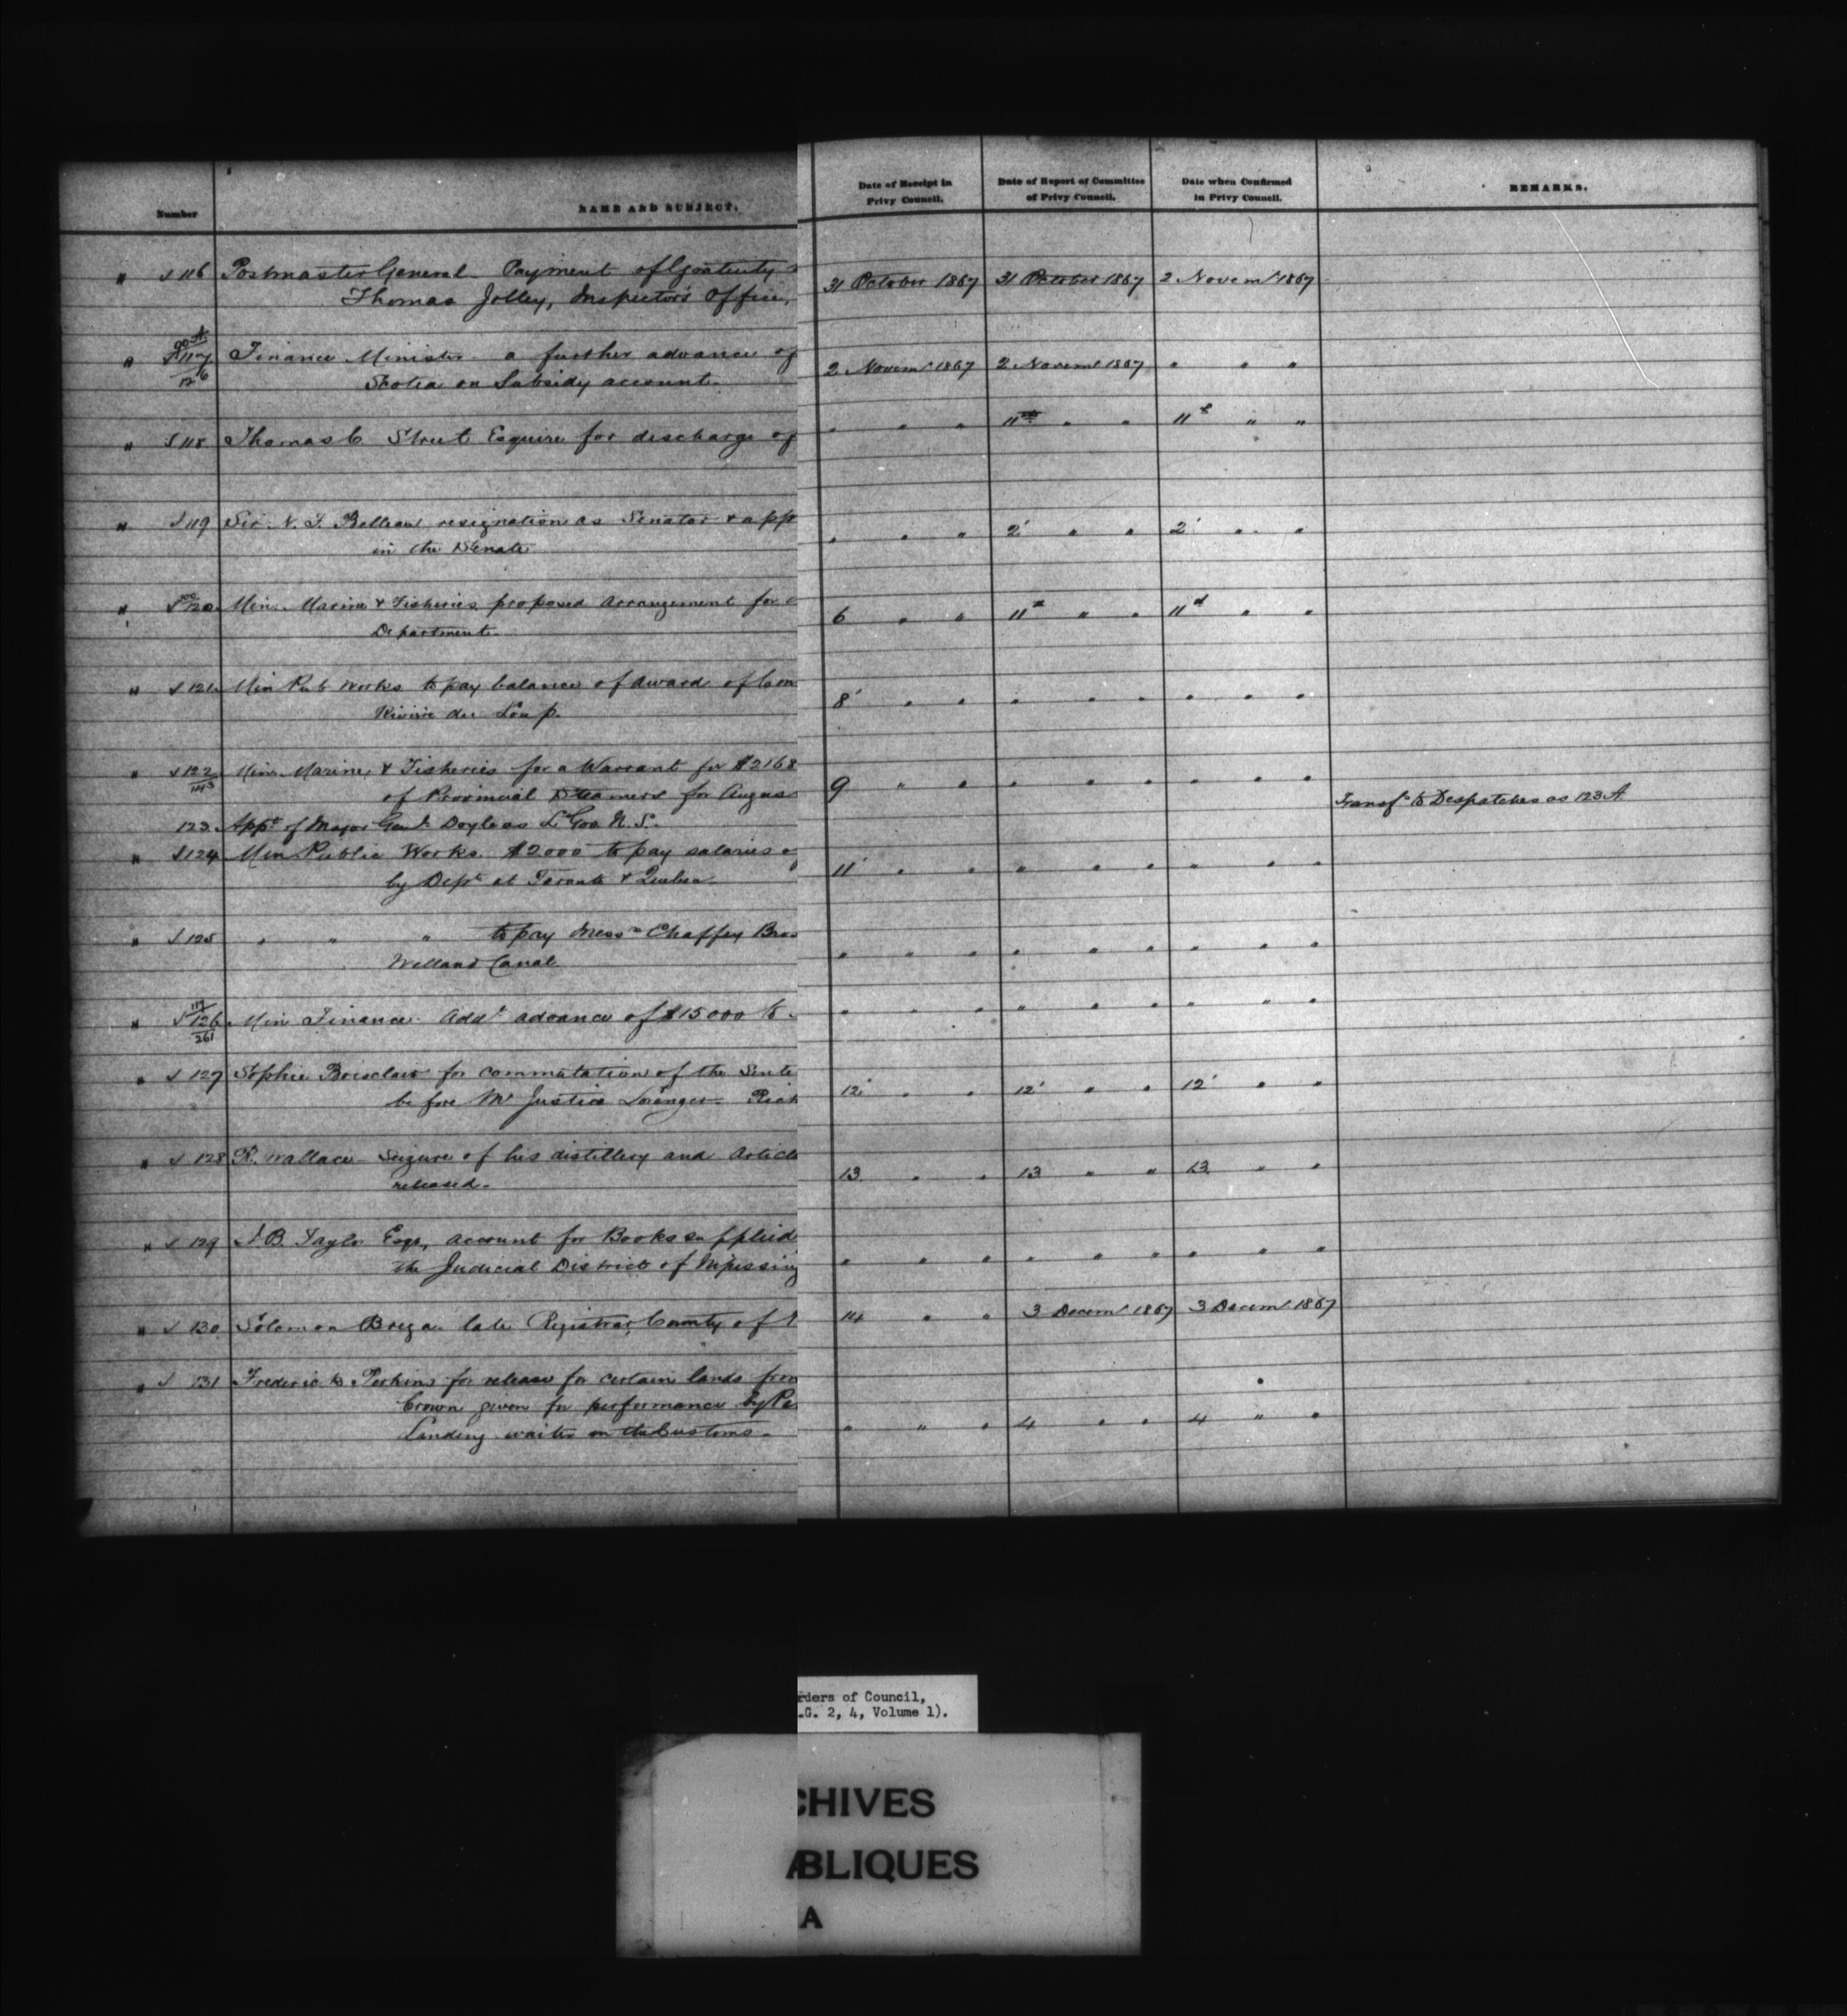 Number
NAME AND SUBJECT.
Date of Receipt in
Privy Council.
Date of Report of Committee
of Privy Council.
Date when Confirmed
in Privy Council.
REMARKS.
" 116 Postmaster General Payment of Gratuity 31 October 1867 31 October 1867 2 Novemr 1867
Thomas Jolley, Inspectors Office,
" 117 Finance Minister a further advance of 2 Novemr 1867 2 Novemr 1867 " " "
126
Scotia on Subsidy account.
" 118 Thomas C. Street Esquire for discharge of " " " 11th " " 11th " "
" 119 Sir N. F. Belleau resignation as Senator & app " " " 2 " " 2 " "
in the Senate
" 120 Min. Marine & Fisheries proposed Arrangement for 6 " " 11th " " 11th " "
Department.
" 121 Min Pub Works to pay balance of Award of Com 8 " " " " " " " "
Rivière du Loup.
" 122 Min. Marine & Fisheries for a Warrant for $2168 9 " " " " " " " "
143
of Provincial Steamers for Augus
123 Appt of Major Genl Doyle as Lt Gov N. S. Transfd to Despatches as 123 A
" 124 Min Public Works. $2000 to pay salaries 11 " " " " " " " "
by Dept at Toronto & Quebec
" 125 " " " to pay Messrs Chaffey Bros " " " " " " " " "
Welland Canal
117
" 126 Min Finance Addl advance of $15000 to " " " " " " " " "
261
" 127 Sophie Boisclair for commutation of the Sente 12 " " 12 " " 12 " "
before Mr Justice Loranger Rich
" 128 R. Wallace Seizure of his distillery and Article 13 " " 13 " " 13 " "
released.
" 129 J. B. Taylor Esqr, account for Books supplied " " " " " " " " "
the Judicial District of Nipissing
" 130 Solomon Brega late Registrar, County of 14 " " 3 Decemr 1867 3 Decemr 1867
" 131 Frederick Perkins for release for certain lands from
Crown given for performance by Pe
Landing waiter in the Customs. " " " 4 " " 4 " "
rders of Council,
.G. 2, 4, Volume 1).
CHIVES
BLIQUES
A